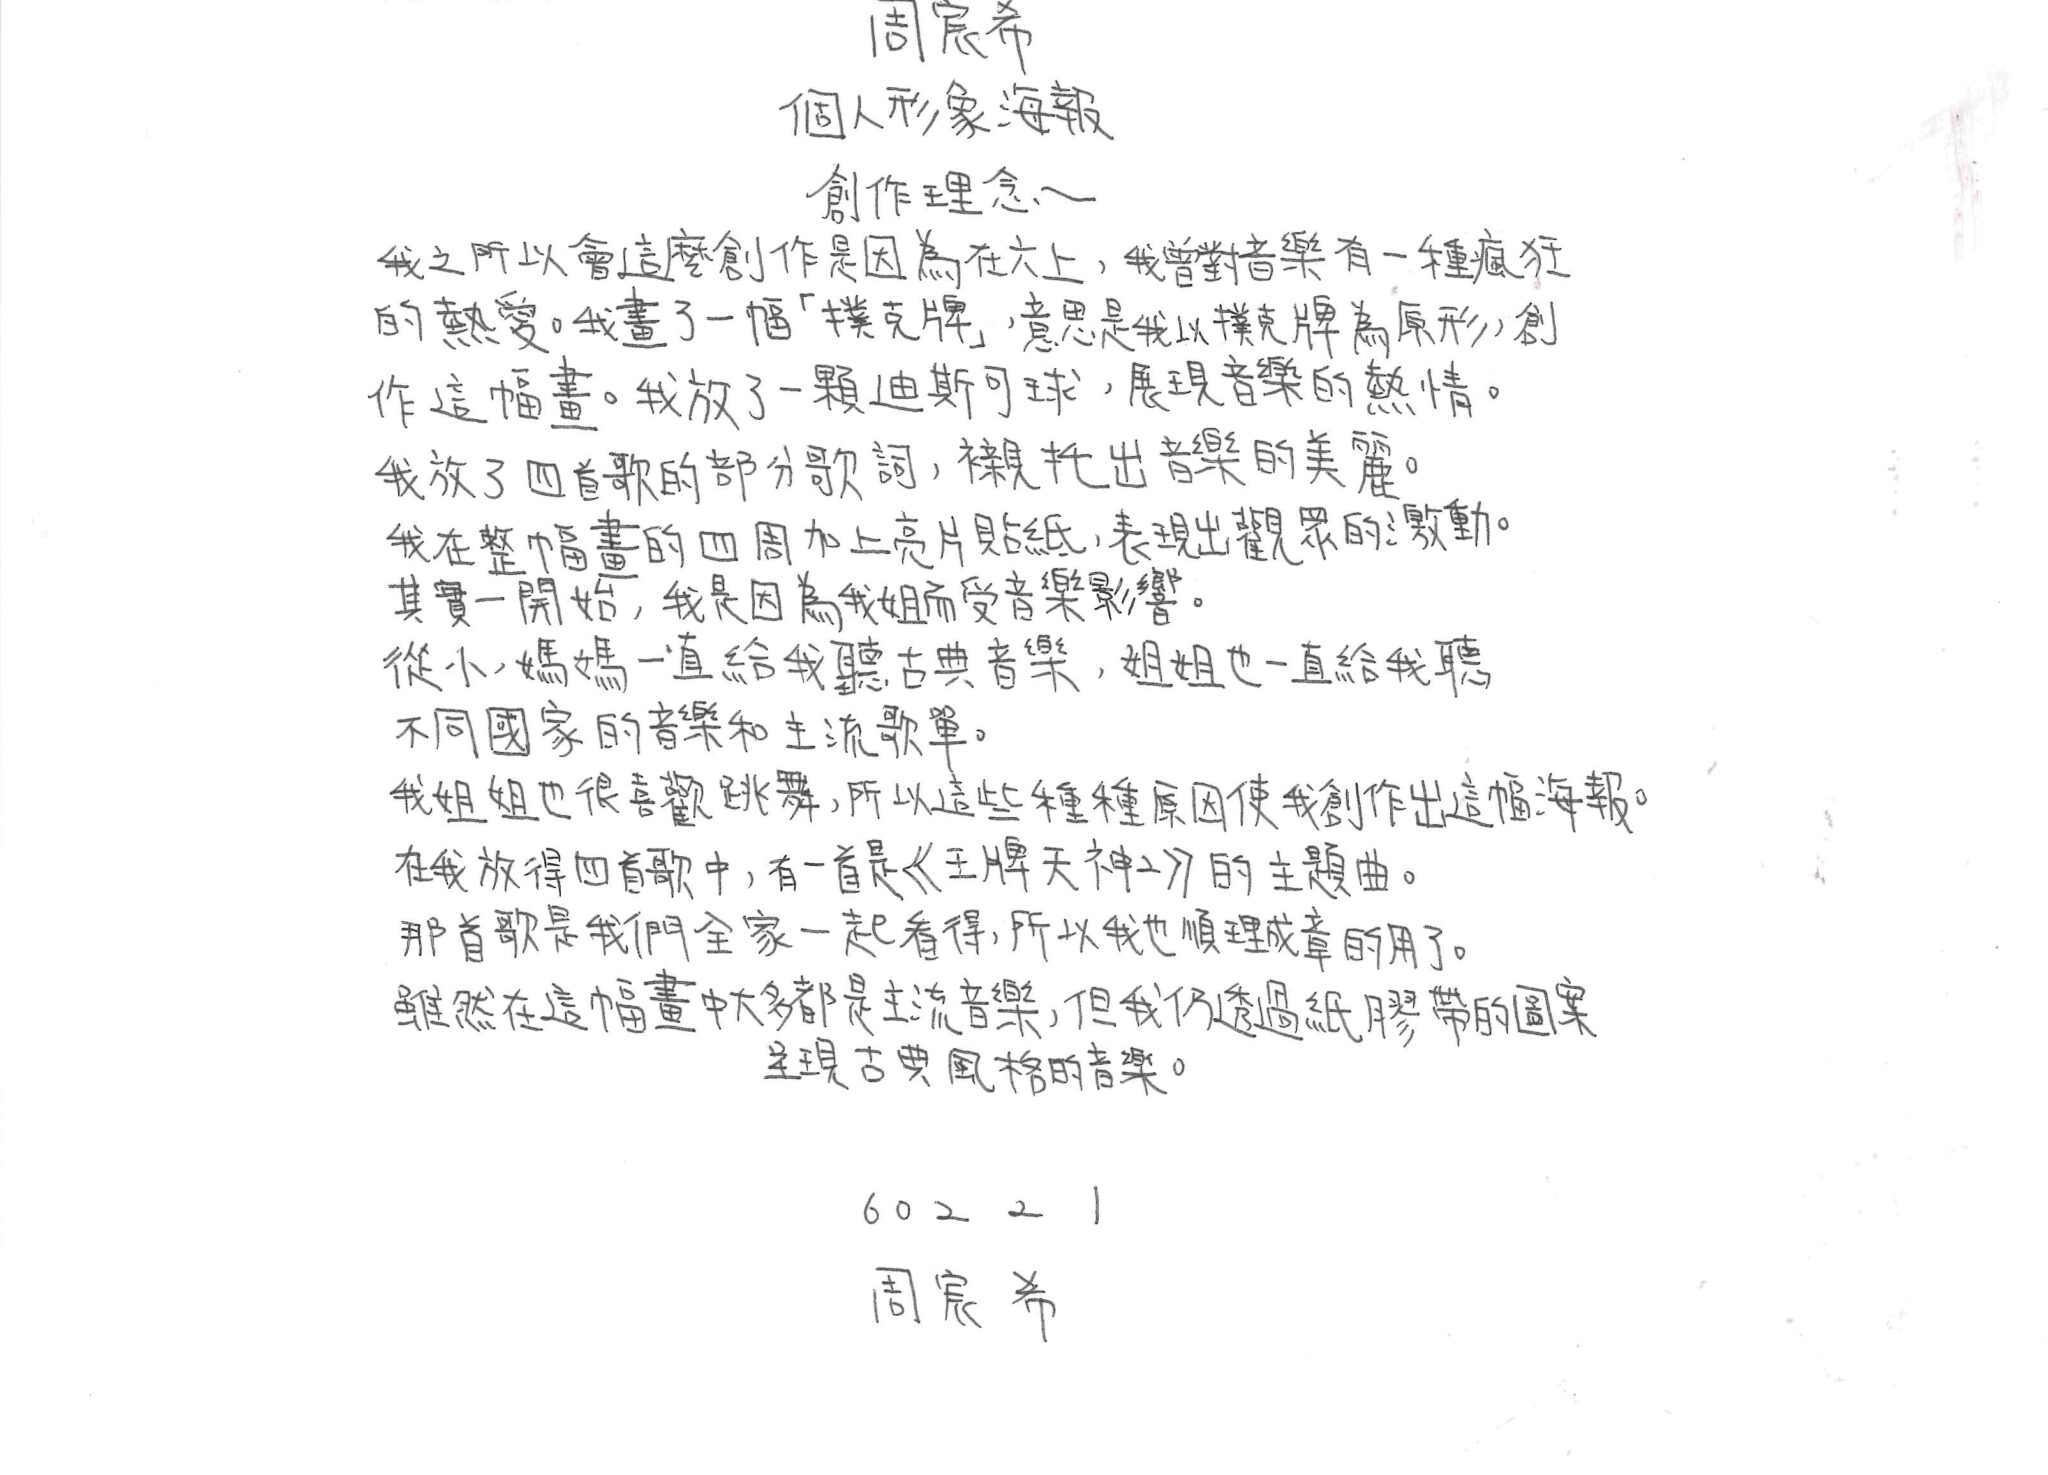 周宸希
個人形象海報
創作理念～
我之所以會這麼創作是因為在六上，我曾對音樂有一種瘋狂
的熱愛。我畫了一幅「撲克牌」，意思是我以撲克牌為原形，創
作這幅畫。我放了一顆迪斯可球，展現音樂的熱情。
我放了四首歌的部分歌詞，襯托出音樂的美麗。
我在整幅畫的四周加上亮片貼紙，表現出觀眾的激動。
其實一開始，我是因為我姐而受音樂影響。
從小，媽媽一直給我聽古典音樂，姐姐也一直給我聽
不同國家的音樂和主流歌單。
我姐姐也很喜歡跳舞，所以這些種種原因使我創作出這幅海報。
在我放得四首歌中，有一首是《王牌天神2》的主題曲。
那首歌是我們全家一起看得，所以我也順理成章的用了。
雖然在這幅畫中大多都是主流音樂，但我仍透過紙膠帶的圖案
呈現古典風格的音樂。
602 2 1
周宸希